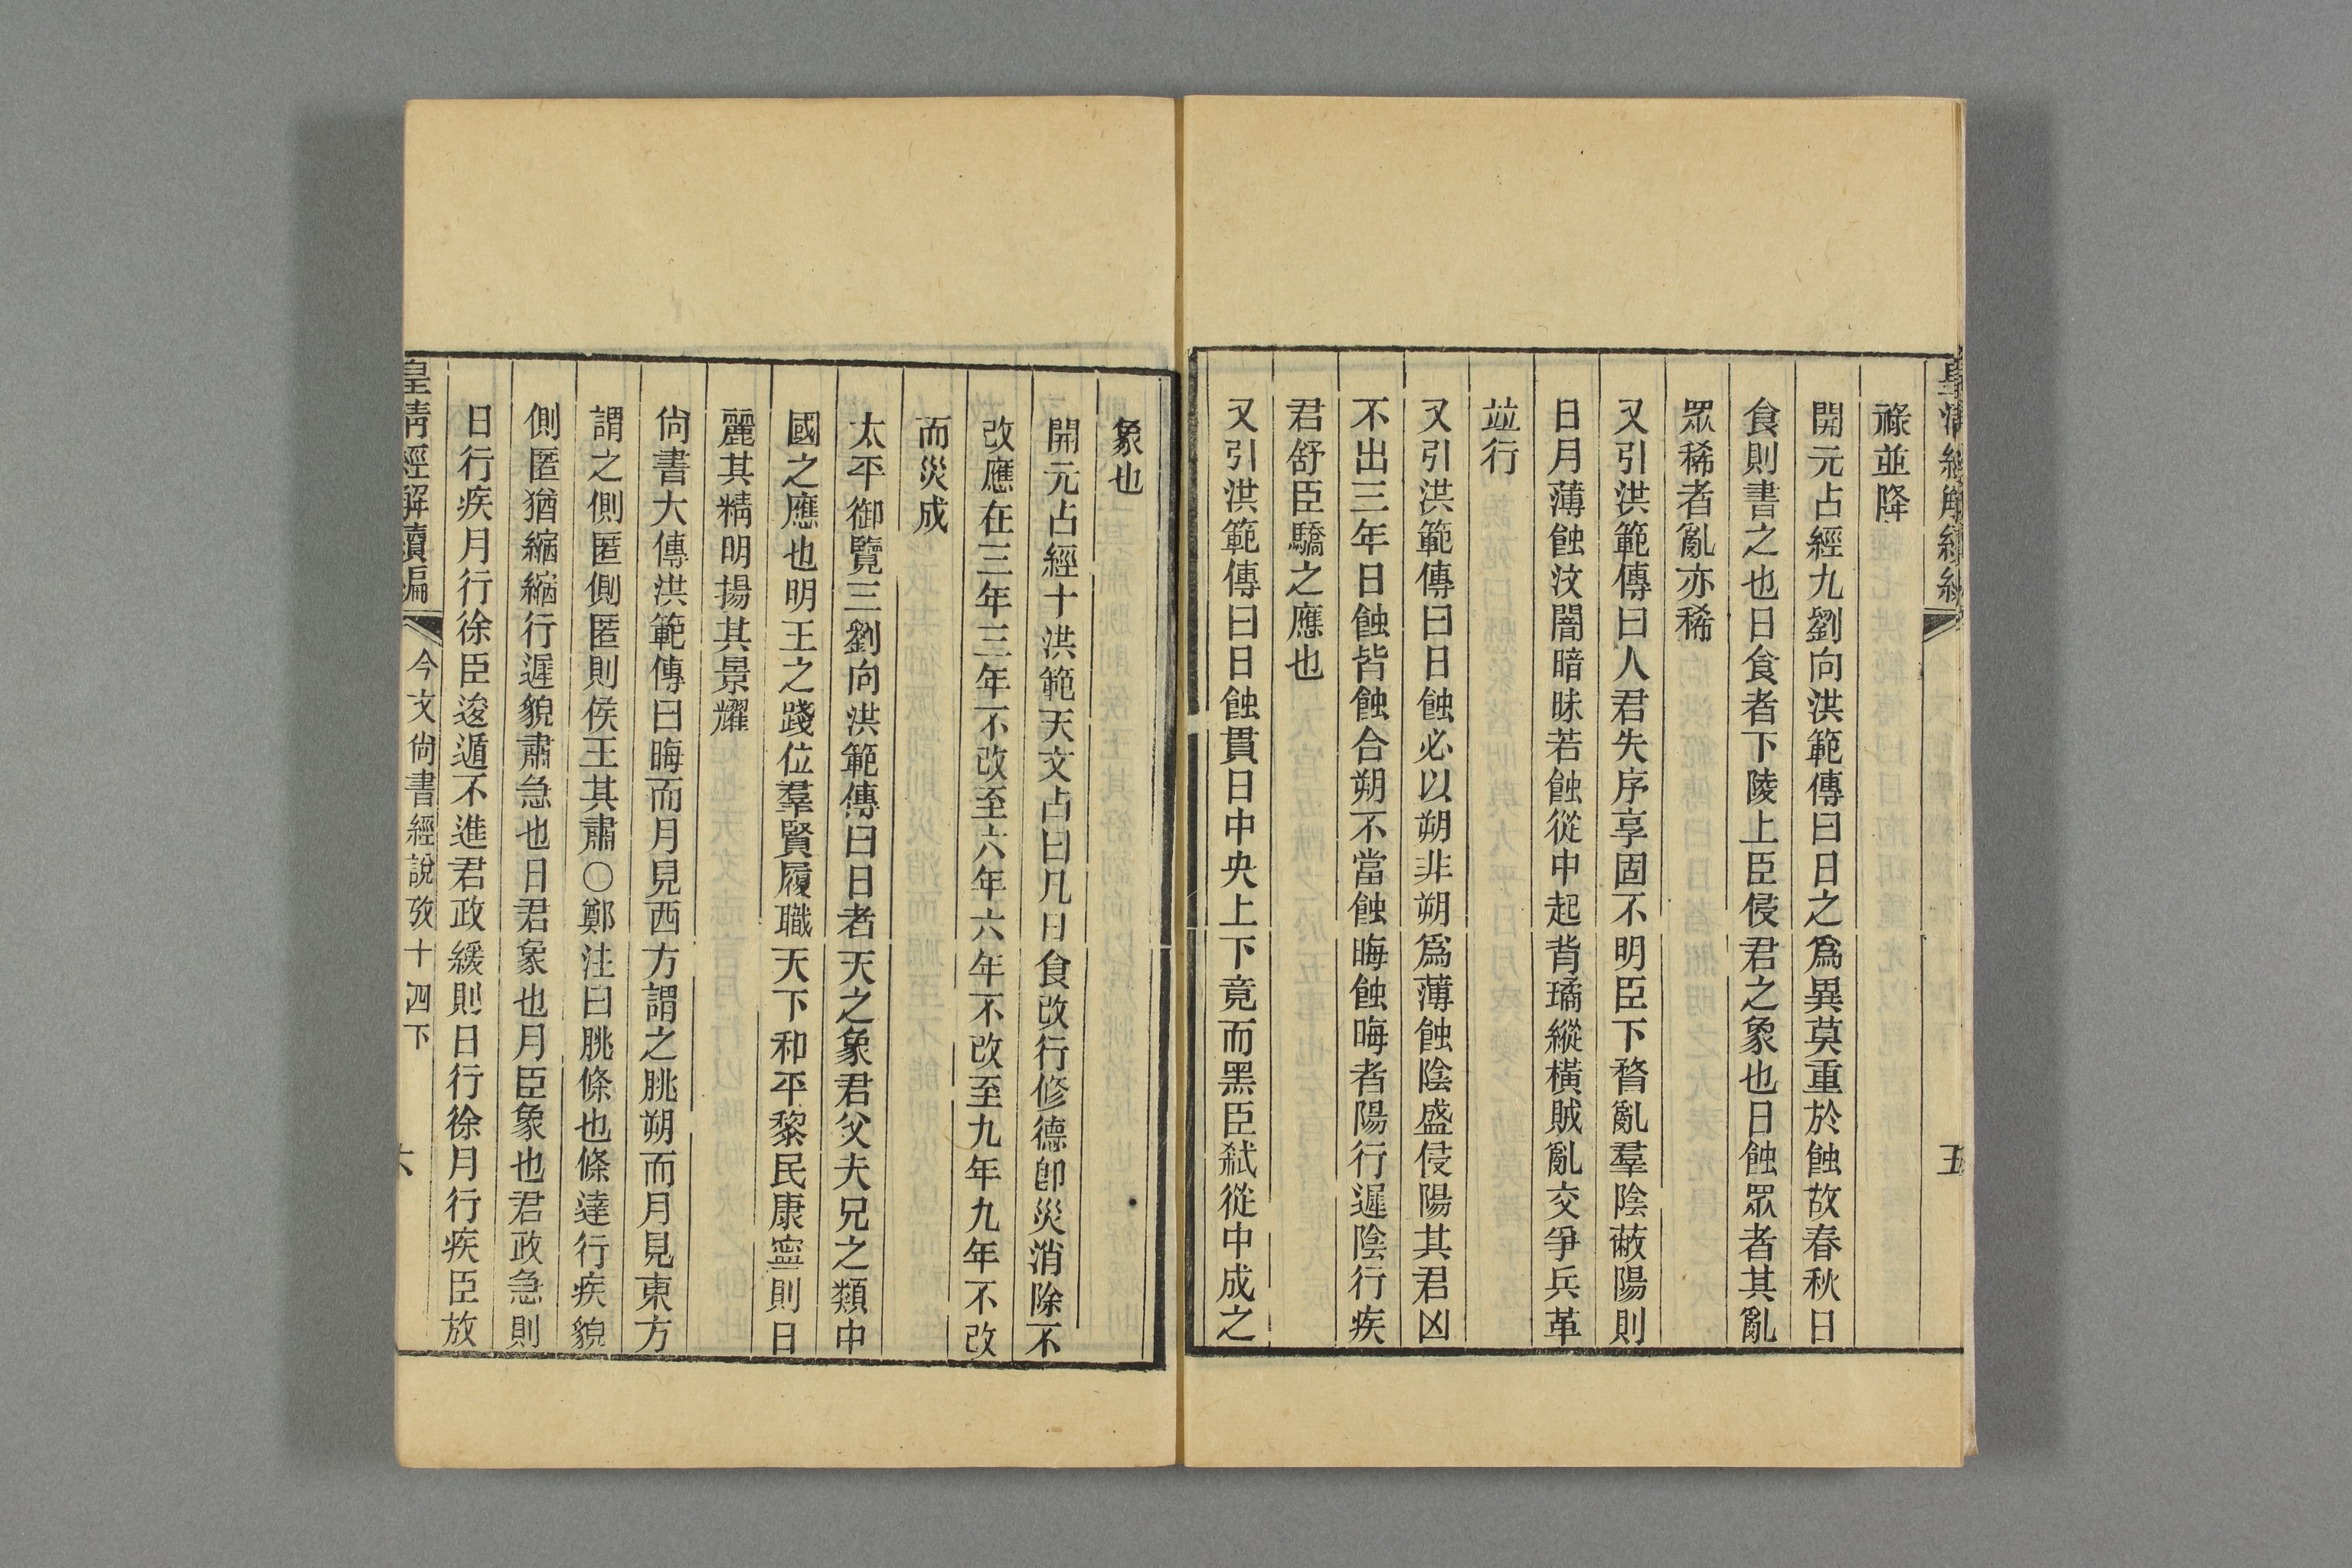 祿並降
開元占經九劉向洪範傳曰日之爲異莫重於蝕故春秋日
食則書之也日食者下陵上臣侵君之象也日蝕眾者其亂
眾稀者亂亦稀
又引洪範傳曰人君失序享固不明臣下瞀亂羣陰蔽陽則
日月薄蝕汶闇暗昧若蝕從中起背璚縱橫賊亂交爭兵革
竝行
又引洪範傳曰日蝕必以朔非朔爲薄蝕陰盛侵陽其君凶
不出三年日蝕皆蝕合朔不當蝕晦蝕晦者陽行遲陰行疾
君舒臣驕之應也
又引洪範傳曰日蝕貫日中央上下竟而黑臣弑從中成之
象也
開元占經十洪範天文占曰凡日食改行修德卽災消除不
改應在三年三年不改至六年六年不改至九年九年不改
而災成
太平御覽三劉向洪範傳曰日者天之象君父夫兄之類中
國之應也明王之踐位羣賢履職天下和平黎民康寧則日
麗其精明揚其景耀
尙書大傳洪範傳曰晦而月見西方謂之朓朔而月見東方
謂之側匿側匿則侯王其肅○鄭注曰朓條也條達行疾貌
側匿猶縮縮行遲貌肅急也日君象也月臣象也君政急則
日行疾月行徐臣逡遁不進君政緩則日行徐月行疾臣放
皇淸經解續編
今文尙書經說攷十四下